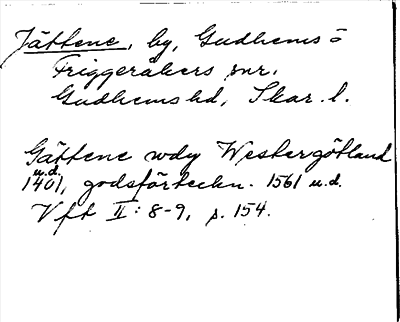 Jättene, by, Gudhems o
Friggeråkers snr.
Gudhems hd, Skar. l.
Gättene wdy Westergötland
u.d.
1401, godsförteckn. 1561 u.d.
Vft II: 8-9, p. 154.